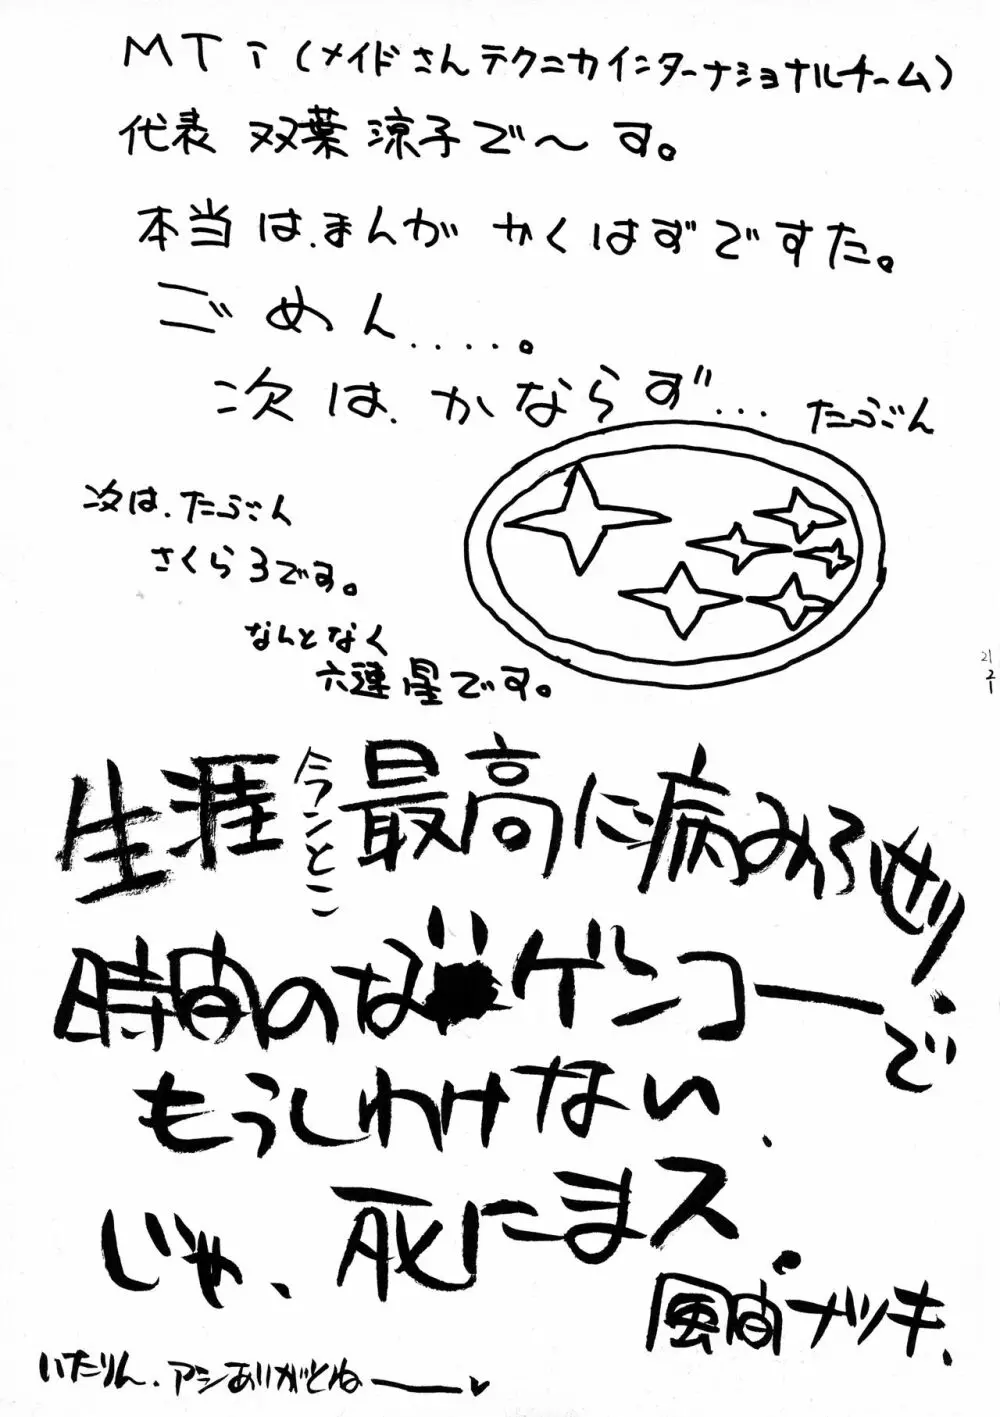 MTi(メイドさんテクニカインターナショナルチーム)
代表 双葉 涼子で〜す。
本当は、まんが かくはずですた。
ごめん.....。
次は、かならず... たぶん
次は、たぶん
さくら3です。
なんとなく
六連星です。
21
生涯 今ンとこ 最高に病み
時間のな ゲンコーで
もうしわけない、
じゃ、死にまス。
風間ナツキ、
いたりん、アシありがとねー